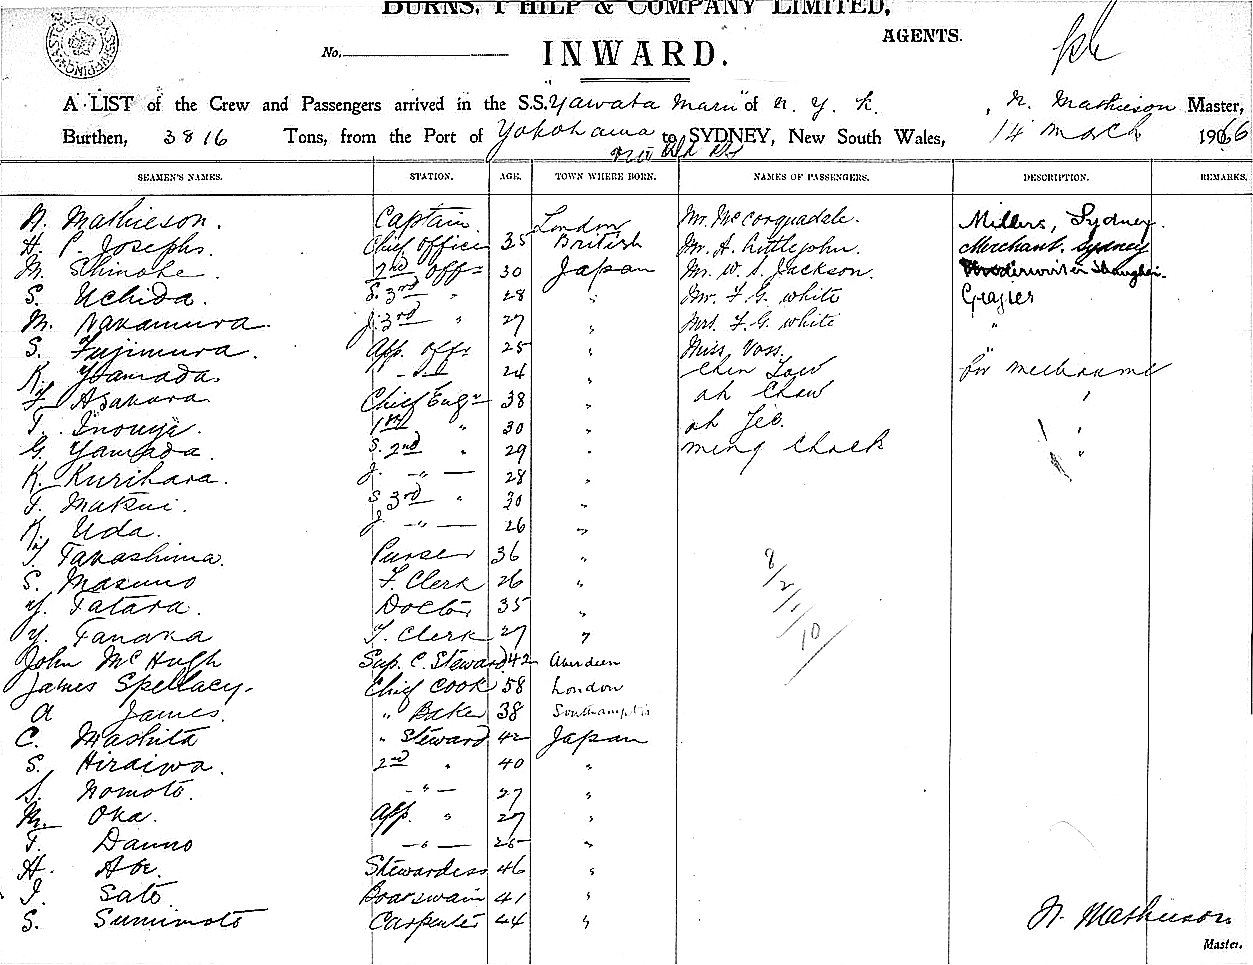 BURNS, PHILP & COMPANY LIMITED,
AGENTS.
No.
INWARD.
A LIST of the Crew and Passengers arrived in the S.S. Yawata Maru of N. Y. K. , N. Mathieson Master,
Burthen, 3816 Tons, from the Port of Yokohama to SYDNEY, New South Wales, 14 March 1906
SEAMEN'S NAMES. STATION. AGE. TOWN WHERE BORN. NAMES OF PASSENGERS. DESCRIPTION. REMARKS.
N. Mathieson. Captain London Mr. McCorquodale. Millers, Sydney.
H. P. Josephs. Chief Officer 35 British Mr. A. Merchant. Sydney
M. Shinohe. 2nd off 30 Japan Mr. W. S. Jackson. Underwriter Shanghai.
S. Uchida. S. 3rd " 28 " Mr. F. G. White Grazier
M. Nakamura. J. 3rd " 27 " Mrs. F. G. White "
S. Fujimura. App. off 25 " Miss Voss.
K. Yamada. - " - 24 " Chin Low for Melbourne
Asahara Chief Engr 38 " ah Chew "
T. Inouye. 1st " 30 " ah "
G. Yamada. S. 2nd " 29 " ming Chock "
K. Kurihara. J. - " - 28 "
T. Matsui. S 3rd " 30 "
K. Uda. J - " - 26 "
T. Takashima. Purser 36 "
S. Masuno F. Clerk 26 "
Y. Tatara. Doctor 35 "
Y. Tanaka T. Clerk 27 "
John McHugh Sup. C. Steward 42 Aberdeen
James Spellacy. Chief Cook 58 London
A James. " Baker 38 Southampton
C. Mashita " Steward 42 Japan
S. Hiraiwa. 2nd " 40 "
S. Nomoto. - " - 27 "
M. Oka. App. " 27 "
T. Danno - " - 25 "
H. Abe. Stewardess 46 "
I. Sato Boatswain 41 "
S. Sumimoto Carpenter 44 "
8/2/1/10/
N. Mathieson
Master.